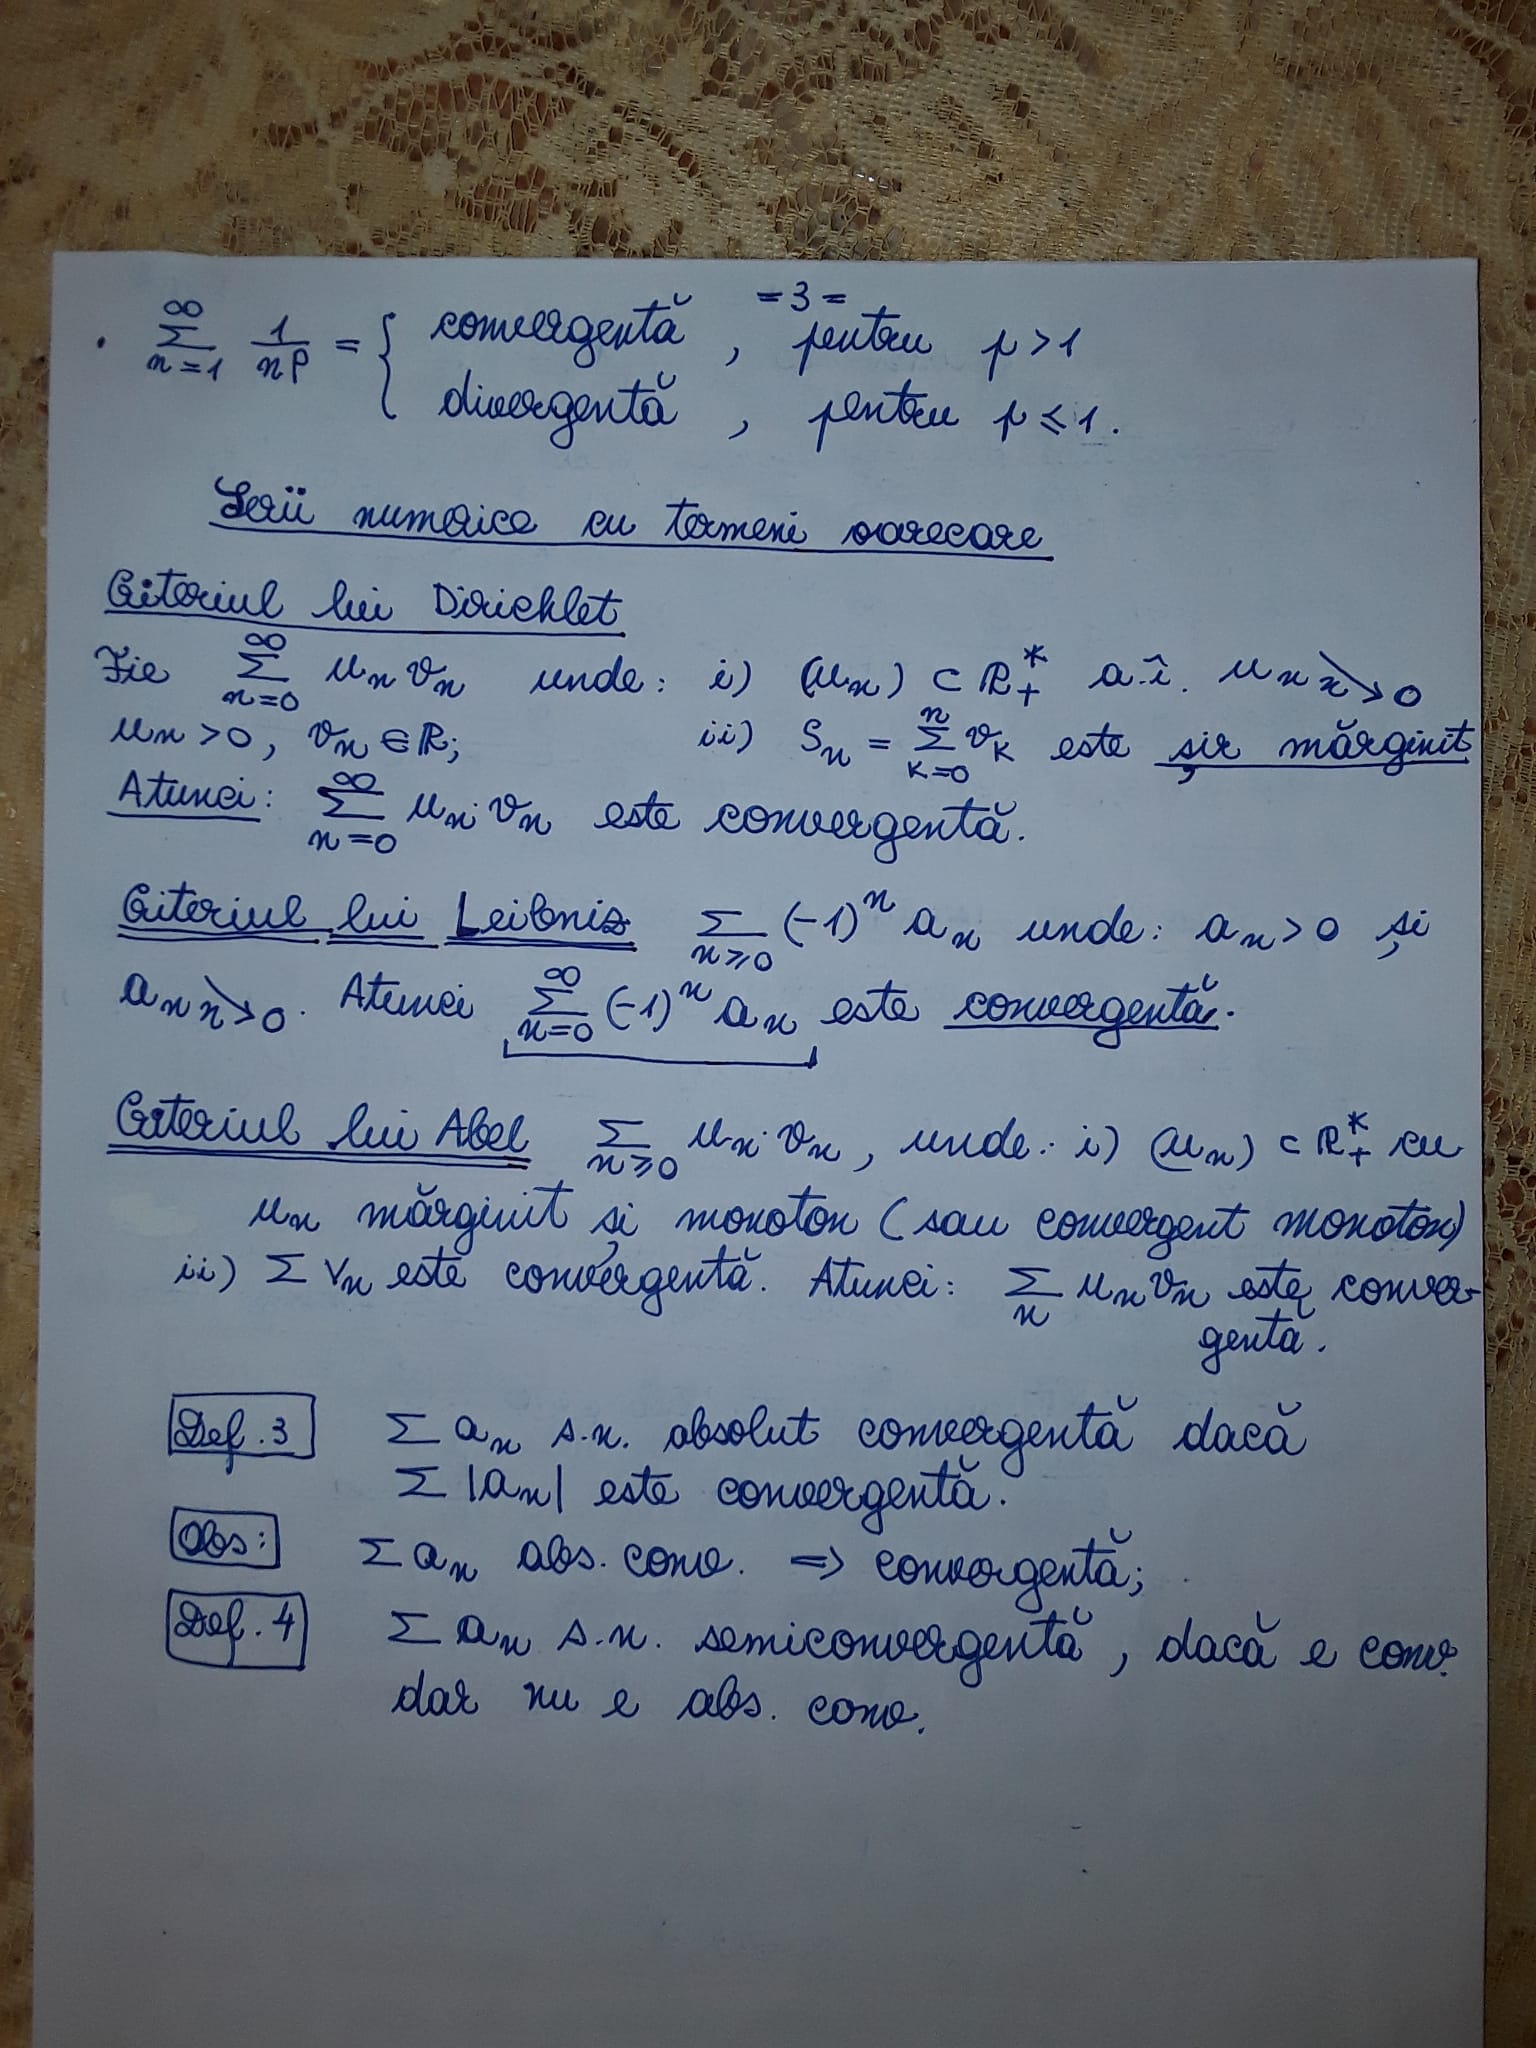 = 3 =
· ∞ Σ n=1 1/n^p = { convergentă, pentru p > 1
divergentă, pentru p ≤ 1.
Serii numerice cu termeni oarecare
Criteriul lui Dirichlet
Fie ∞ Σ n=0 u_n v_n unde: i) (u_n) ⊂ R*₊ a.î. u_n ↘ 0
u_n > 0, v_n ∈ R; ii) S_n = n Σ k=0 v_k este şir mărginit
Atunci: ∞ Σ n=0 u_n · v_n este convergentă.
Criteriul lui Leibniz Σ n≥0 (-1)^n a_n unde: a_n > 0 şi
a_n ↘ 0. Atunci ∞ Σ n=0 (-1)^n a_n este convergentă.
Criteriul lui Abel Σ n≥0 u_n · v_n, unde: i) (u_n) ⊂ R*₊ cu
u_n mărginit şi monoton (sau convergent monoton)
ii) Σ v_n este convergentă. Atunci: Σ n u_n v_n este conver-
gentă.
Def. 3 Σ a_n s.n. absolut convergentă dacă
Σ |a_n| este convergentă.
Obs: Σ a_n abs. conv. => convergentă;
Def. 4 Σ a_n s.n. semiconvergentă, dacă e conv.
dar nu e abs. conv.